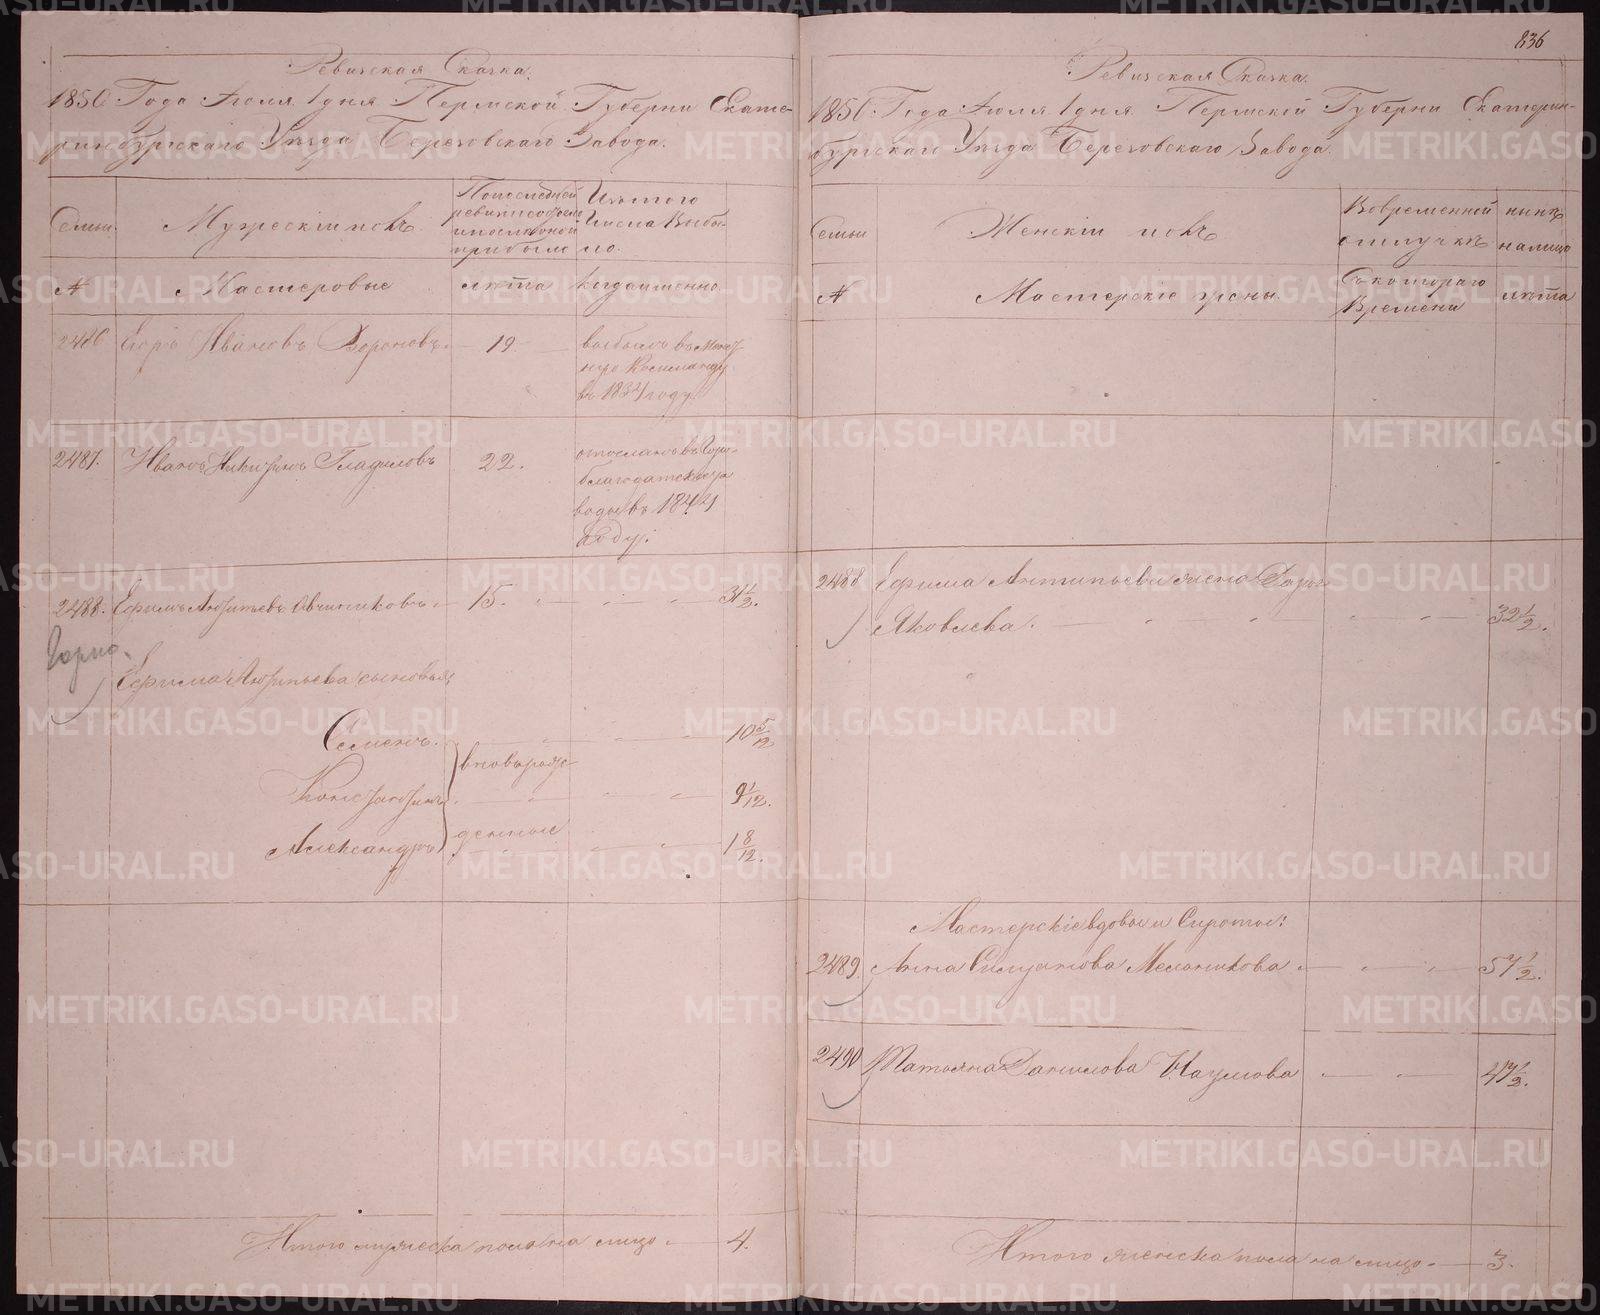 836
Ревизская Сказка.
1850 Года Июля 1 дня Пермской Губерни Екате-
ринбургскаго Уезда Березовскаго Завода.
Семьи.
Мужескiй полъ
По последней
ревизiи состояло
и после оной
прибыло
Изъ того
Числа Выбы-
ло.
№
Мастеровые
лѣта
Когда именно
2486 Егоръ Ивановъ Вороновъ 19
выбылъ въ
въ 1834 году.
2487. Иванъ Никитинъ Гладиловъ 22.
отосланъ въ Горо-
благодатскiе за
воды въ 1844
году.
2488. Ефимъ Антипьевъ Овчинниковъ 15. 31 1/2.
Ефима Антипьева сыновья:
Семенъ. 10 5/12
вновьрож-
Константинъ 9 1/12.
денные
Александръ 1 8/12.
Итого мужеска пола на лицо 4.
Ревизская Сказка.
1850 Года Июля 1 дня Пермской Губерни Екатерин-
бургскаго Уезда Березовскаго Завода.
Семьи
Женскiй полъ
Во временной
отлучкѣ
нынѣ
на лицо
№
Мастерскiе жены.
Съ котораго
Времени
лѣта
2488 Ефима Антипьева жена Дарья
Яковлева. 32 1/2.
Мастерскiе вдовы и Сироты:
2489 Анна Силуянова Мельникова 57 1/2.
2490 Татьяна Данилова Наумова 47 1/2.
Итого женска пола на лицо 3.
METRIKI.GASO-URAL.RU